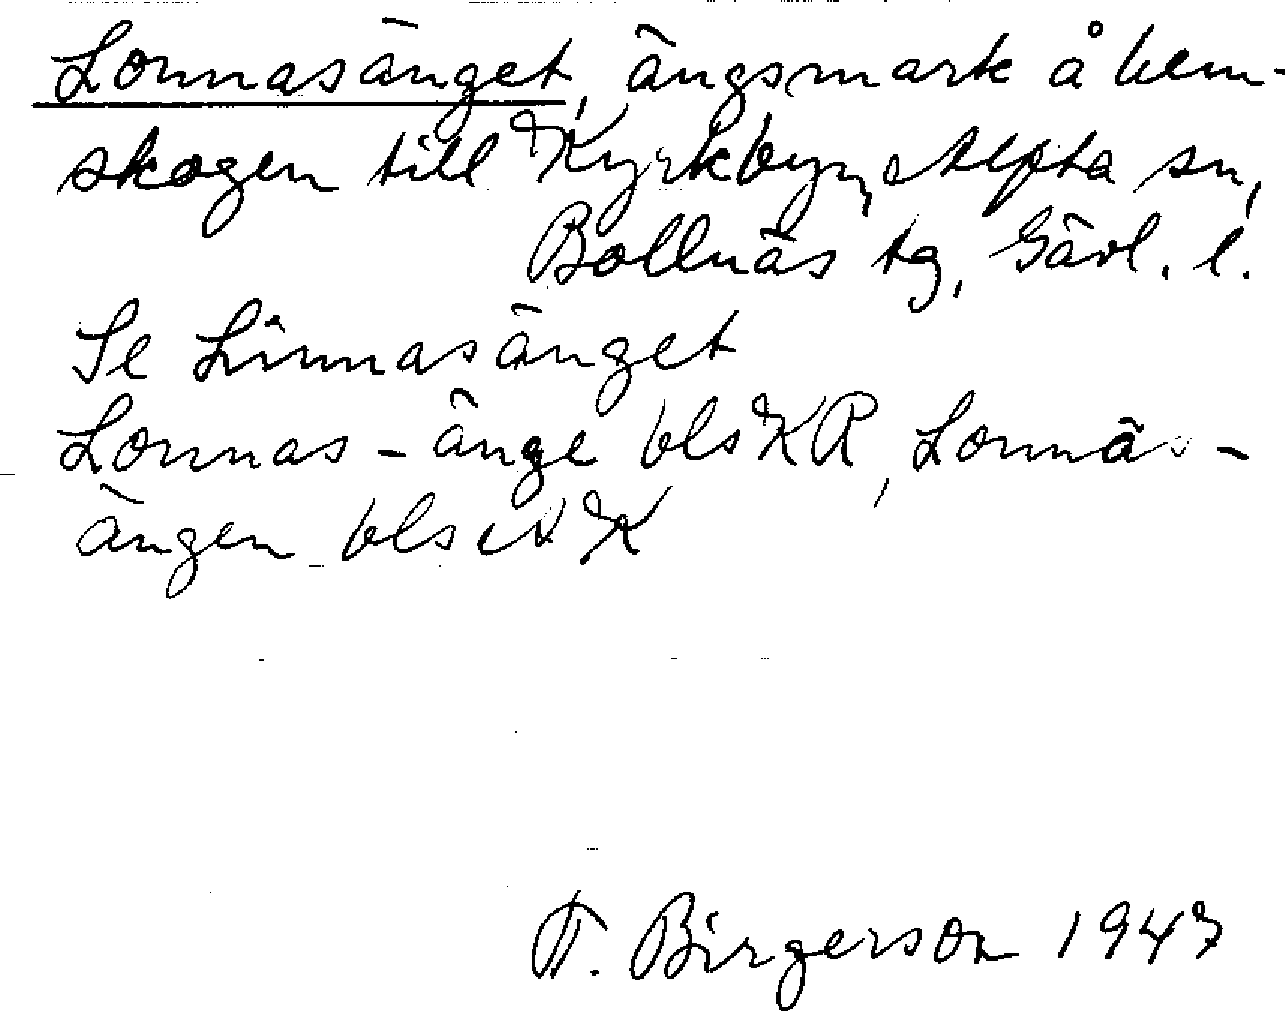 Lonnasänget, ängsmark å hem-
skogen till Kyrkbyn, Alfta sn,
Bollnäs tg, Gävl. l.
Se Linnasänget
Lonnas-änge bls KR, Lonnäs-
ängen bls NK
T. Birgerson 1947